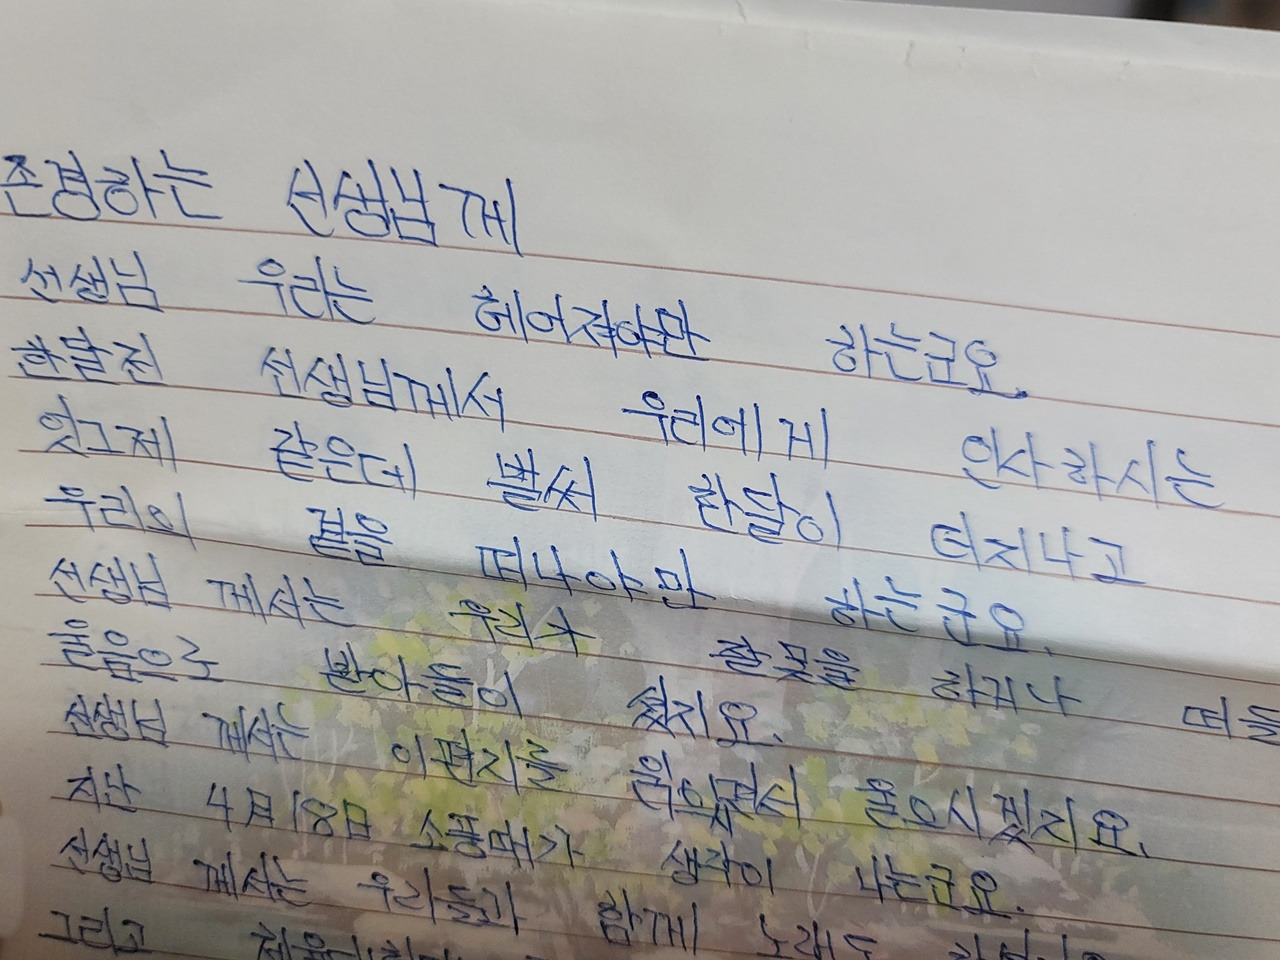 존경하는 선생님께
선생님 우리는 헤어져야만 하는군요.
한달전 선생님께서 우리에게 인사하시는
잇그제 같은데 벌써 한달이 더지나고
우리의 곁을 떠나야만 하는군요.
선생님 께서는 우리가 잘못을 하거나 떠들
울음으로 받아들이 셨지요.
선생님 께서는 이편지를 읽으면서 울으시겠지요.
지난 4月18日 소풍때가 생각이 나는군요.
선생님 께서는 우리들과 함께 노래도
그리고